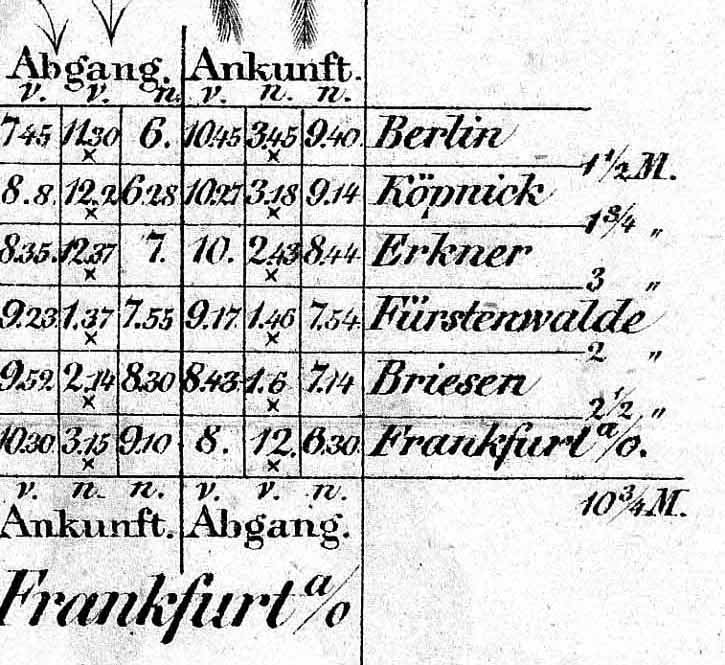 Abgang. Ankunft.
v. v. n. v. n. n.
7.45 11.30 6. 10.45 3.45 9.40. Berlin
× ×
1 1/2 M.
8.8. 12.2 6.28 10.27 3.18 9.14 Köpnick
× ×
1 3/4 "
8.35. 12.37 7. 10. 2.43 8.44 Erkner
× ×
3 "
9.23. 1.37 7.55 9.17. 1.46 7.54 Fürstenwalde
× ×
2 "
9.52. 2.14 8.30 8.43. 1.6 7.14 Briesen
× ×
2 1/2 "
10.30 3.15 9.10 8. 12. 6.30 Frankfurt a/o.
× ×
v. n. n. v. v. n.
10 3/4 M.
Ankunft. Abgang.
Frankfurt a/o